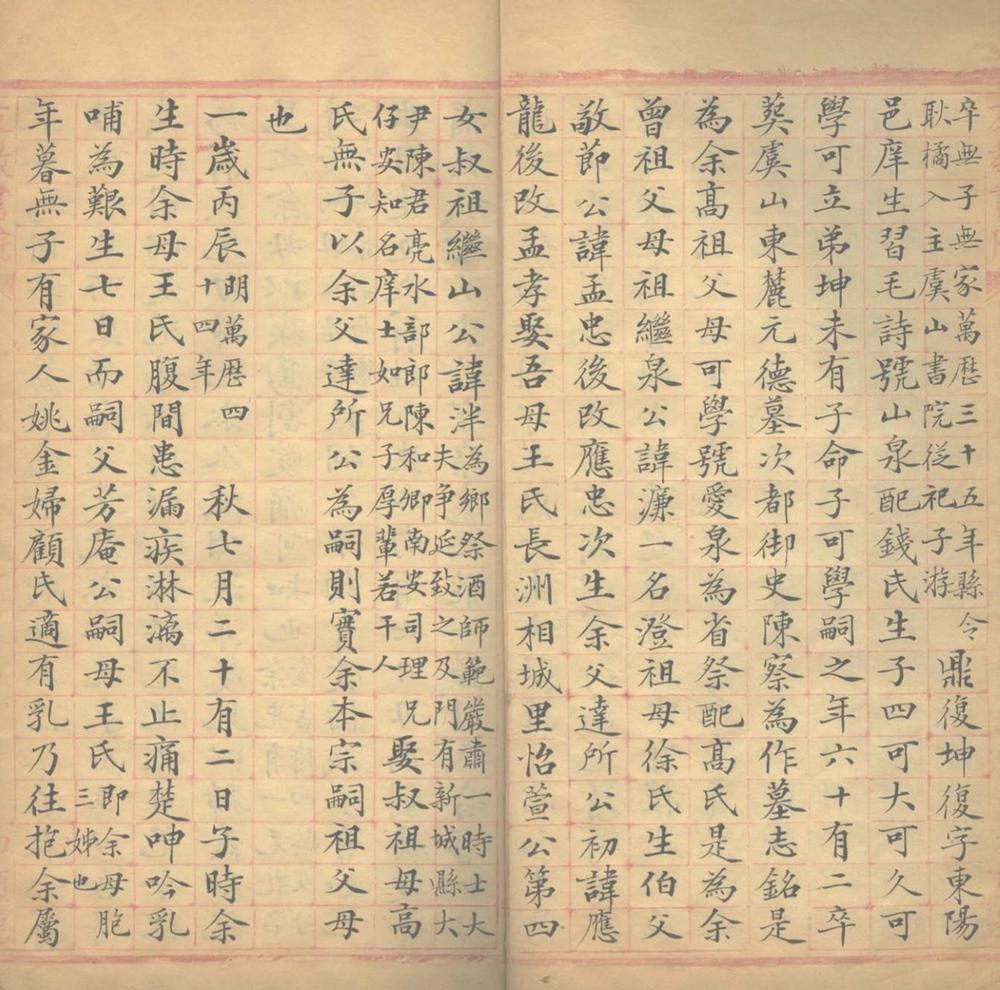 卒無子無家萬歷三十五年縣令
耿橘入主虞山書院從祀子游
鼎復坤復字東陽
邑庠生習毛詩號山泉配錢氏生子四可大可久可
學可立弟坤未有子命子可學嗣之年六十有二卒
葬虞山東麓元德墓次都御史陳察為作墓志銘是
為余高祖父母可學號愛泉為省祭配高氏是為余
曾祖父母祖繼泉公諱濂一名澄祖母徐氏生伯父
敬節公諱孟忠後改應忠次生余父達所公初諱應
龍後改孟孝娶吾母王氏長洲相城里怡萱公第四
女叔祖繼山公諱泮
為鄉祭酒師範嚴肅一時士大
夫争延致之及門有新城縣大
尹陳君亮水部郎陳和卿南安司理兄
仔安知名庠士如兄子厚輩若干人
娶叔祖母高
氏無子以余父達所公為嗣則實余本宗嗣祖父母
也
一歲丙辰
明萬歷四
十四年
秋七月二十有二日子時余
生時余母王氏腹間患漏疾淋漓不止痛楚呻吟乳
哺為艱生七日而嗣父芳庵公嗣母王氏
即余母胞
三姊也
年暮無子有家人姚金婦顧氏適有乳乃往抱余屬